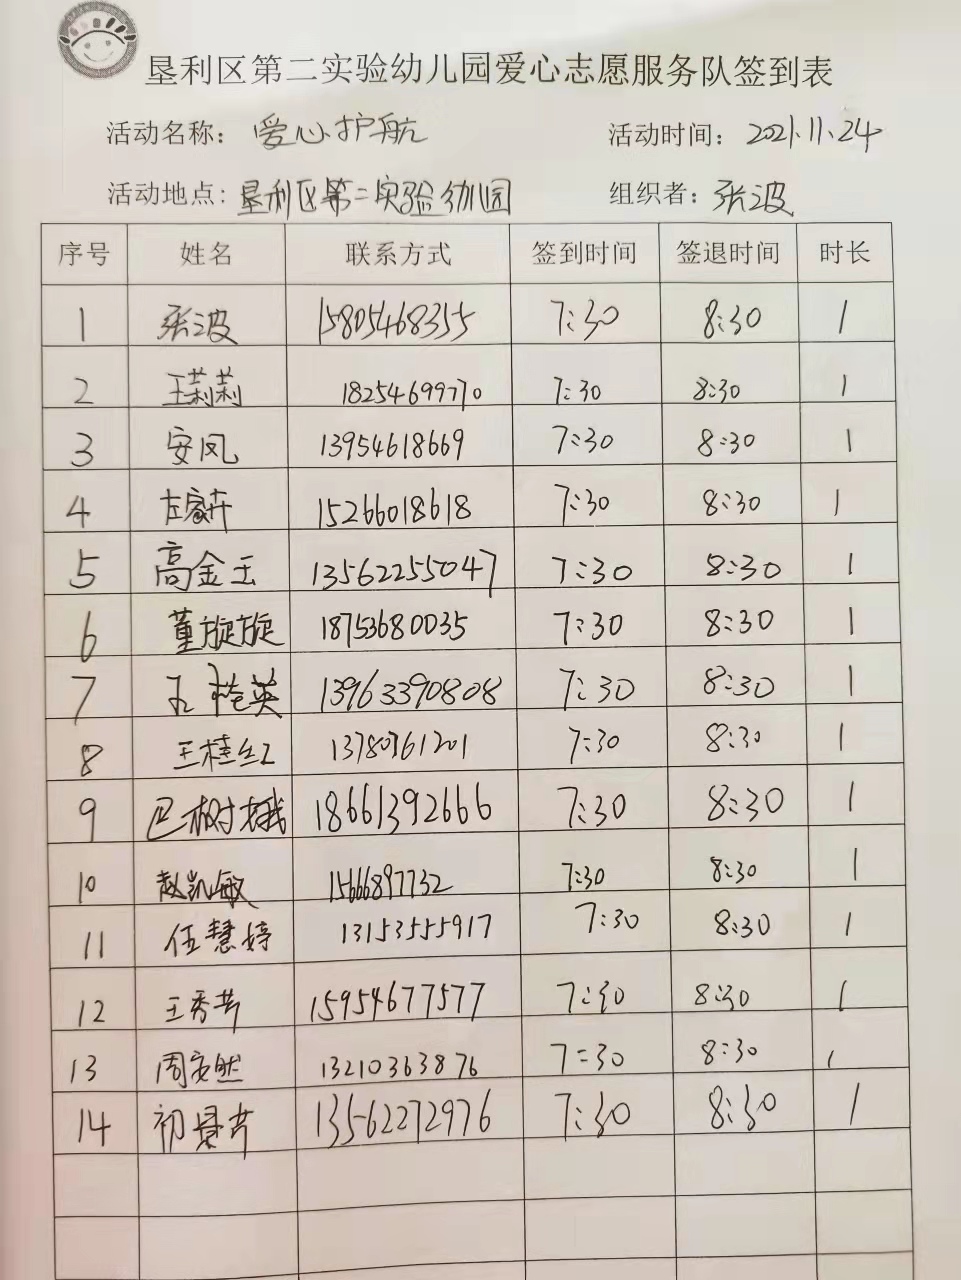 垦利区第二实验幼儿园爱心志愿服务队签到表
活动名称: 爱心护航 活动时间: 2021.11.24
活动地点: 垦利区第二实验幼儿园 组织者: 张波
序号 姓名 联系方式 签到时间 签退时间 时长
1 张波 15805468355 7:30 8:30 1
2 王莉莉 18254699770 7:30 8:30 1
3 安凤 13954618669 7:30 8:30 1
4 15266018618 7:30 8:30 1
5 高金玉 13562255047 7:30 8:30 1
6 董旋旋 18753680035 7:30 8:30 1
7 13963390808 7:30 8:30 1
8 王桂红 13780761201 7:30 8:30 1
9 18661392666 7:30 8:30 1
10 赵凯敏 15666897732 7:30 8:30 1
11 伍慧婷 13153555917 7:30 8:30 1
12 王秀芹 15954677577 7:30 8:30 1
13 周安然 13210363876 7:30 8:30 1
14 初景芹 13562272976 7:30 8:30 1